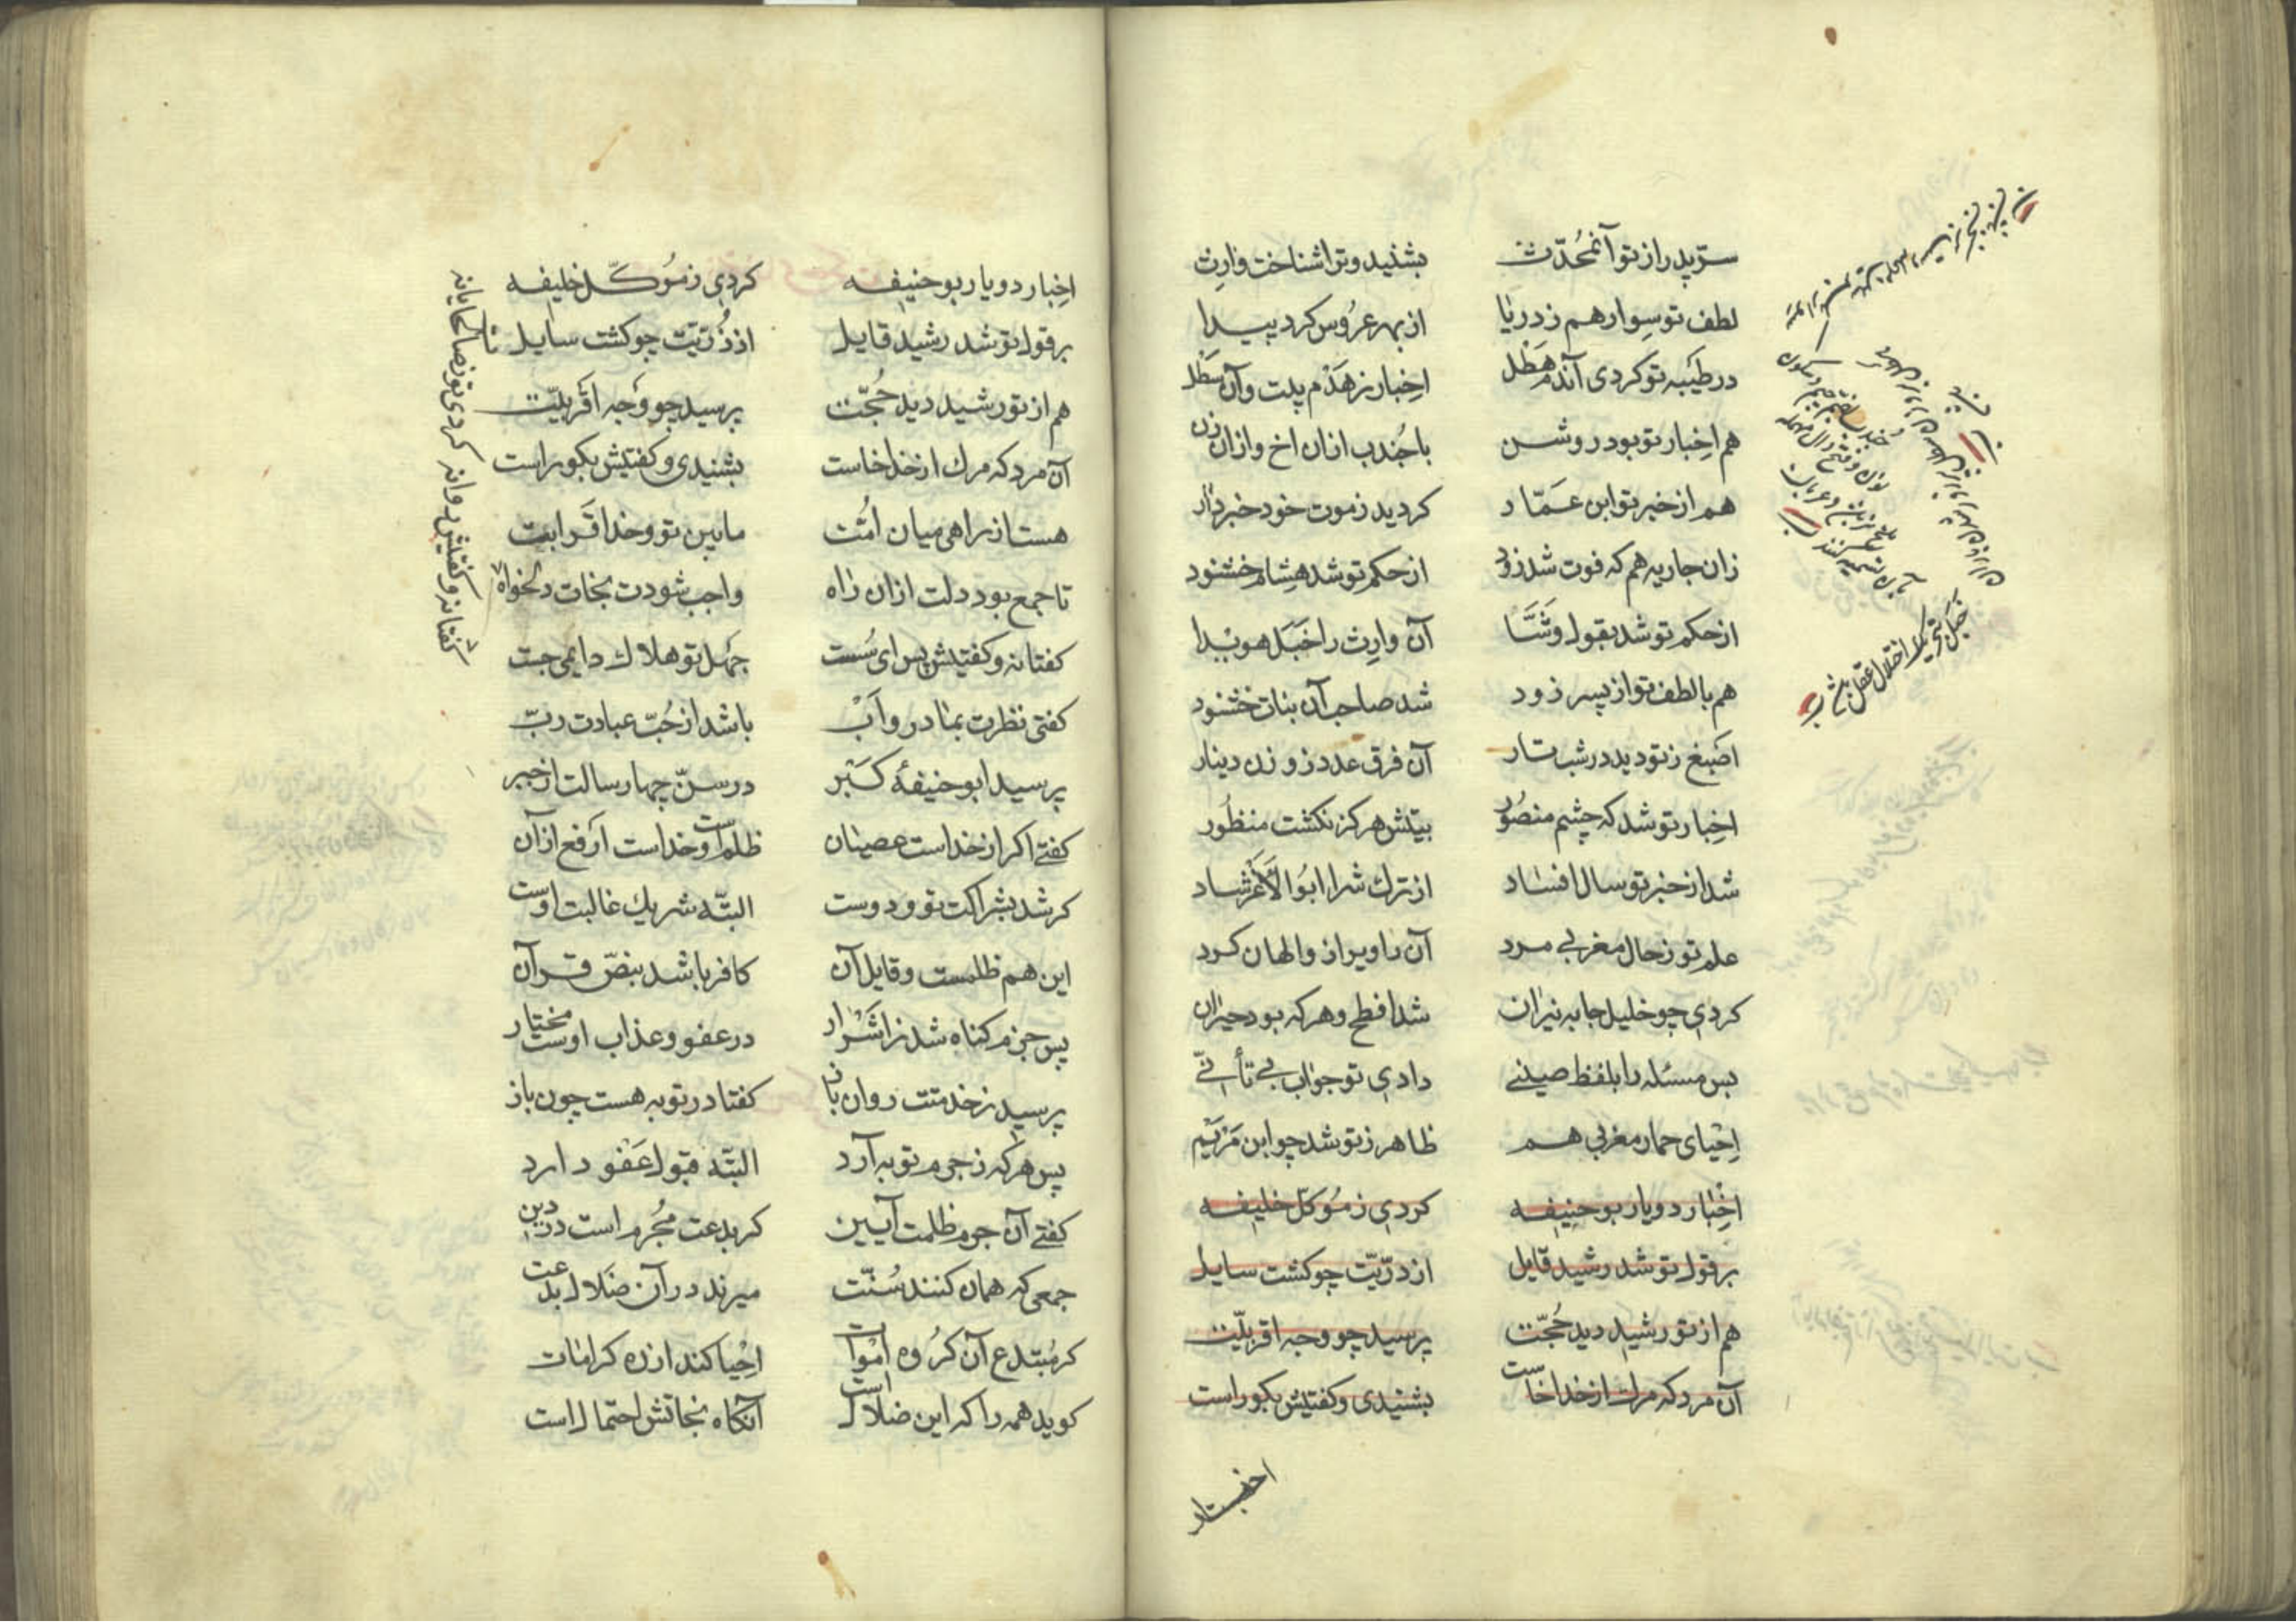 سرّ پدر از تو آن محُدّث بشنید و ترا شناخت وارث
لطف تو سِوار هم ز دریا از بهر عرُوس کرد پیدا
در طَیبه تو کردی آندم هَطْل اخِبار ز هَدْم بیت و آن سَطْل
هم اخِبار تو بود روشن با جُندب ازان اخ و ازان زن
هم از خبر تو ابن عَمّار کردید ز موت خود خبردار
زان جاریه هم که فوت شد زود از حکم تو شد هِشام خشنود
از حکم تو شد بقول وَشّا آن وارث را خَبَل هویدا
هم با لطف تو از پسر زود شد صاحب آن بنات خشنود
اصَبغ ز تو دید در شب تار آن فرق عدد ز وزن دینار
اخِبار تو شد که چشم منصُور بیتش هرکز نکشت منظُور
شد از خبر تو سال افساد از ترک شرا ابُوالْأَغَر شاد
علم تو ز حال مغربی مرد آن راویرا ز والهان کرد
کردی چو خلیل جا به نیران شد افطح و هرکه بود حیران
بس مسئله را بلفظ صینے دادی تو جواب بی تأنّے
اِحْیای حمار مغربی هم ظاهر ز تو شد چو ابن مَرْیَم
اخِْبار دو یار بوحنیفه کردی ز مُوکّل خلیفه
بر قول تو شد رشید قایل از ذرّیّت چو کشت سایل
هم از تو رشید دید حُجّت پرسید چو وجه اقربیّت
آن مرد که مرك از خدا خاست بشنیدی و کفتیش بکو راست
اخبار
خَبَل بتحریک اختلال عقل
اخِبار دو یار بوحنیفه کردی ز مُوکّل خلیفه
بر قول تو شد رشید قایل از ذُرّیّت چو کشت سایل
هم از تو رشید دید حُجّت پرسید چو وَجه اقَربیّت
آن مرد که مرك از خدا خاست بشنیدی و کفتیش بکو راست
هست از راهی میان امُّت مابین تو و خدا قَرابت
تا جمع بود دلت ازان راه واجب شودت نجات دلخواه
کفتا نه و کفتیش پس ای سُست جهُل تو هلاك دایمی جست
کفتی نظرت بمادر و اَبْ باشد از حُبّ عبادت ربّ
پرسید ابو حنیفۀ کَبْر در سنّ چهار سالت از خبر
کفتے اکر از خداست عصیان ظلم است و خداست ارَفع از آن
کر شد بشراکت تو و دوست البتّه شریك غالبت اوست
این هم ظلمست و قایل آن کافر باشد بنصّ قرآن
پس جزم کناه شد ز اشَْرار در عفو و عذاب اوست مختار
پرسید ز خدمتت روان باز کفتا در توبه هست چون باز
پس هرکه ز جرم توبه آرد البتّه قبول عَفْو دارد
کفتے آن جرم ظلمت آیین کر بدعت مجُرم است در دین
جمعی که همان کنند سُنّت میرند در آن ضَلال بدعت
کر مُبتدع آن کرُوه امْوات احْیا کند از ره کرامات
کوید همه را که این ضلال است آنکاه نجاتش احتمال است